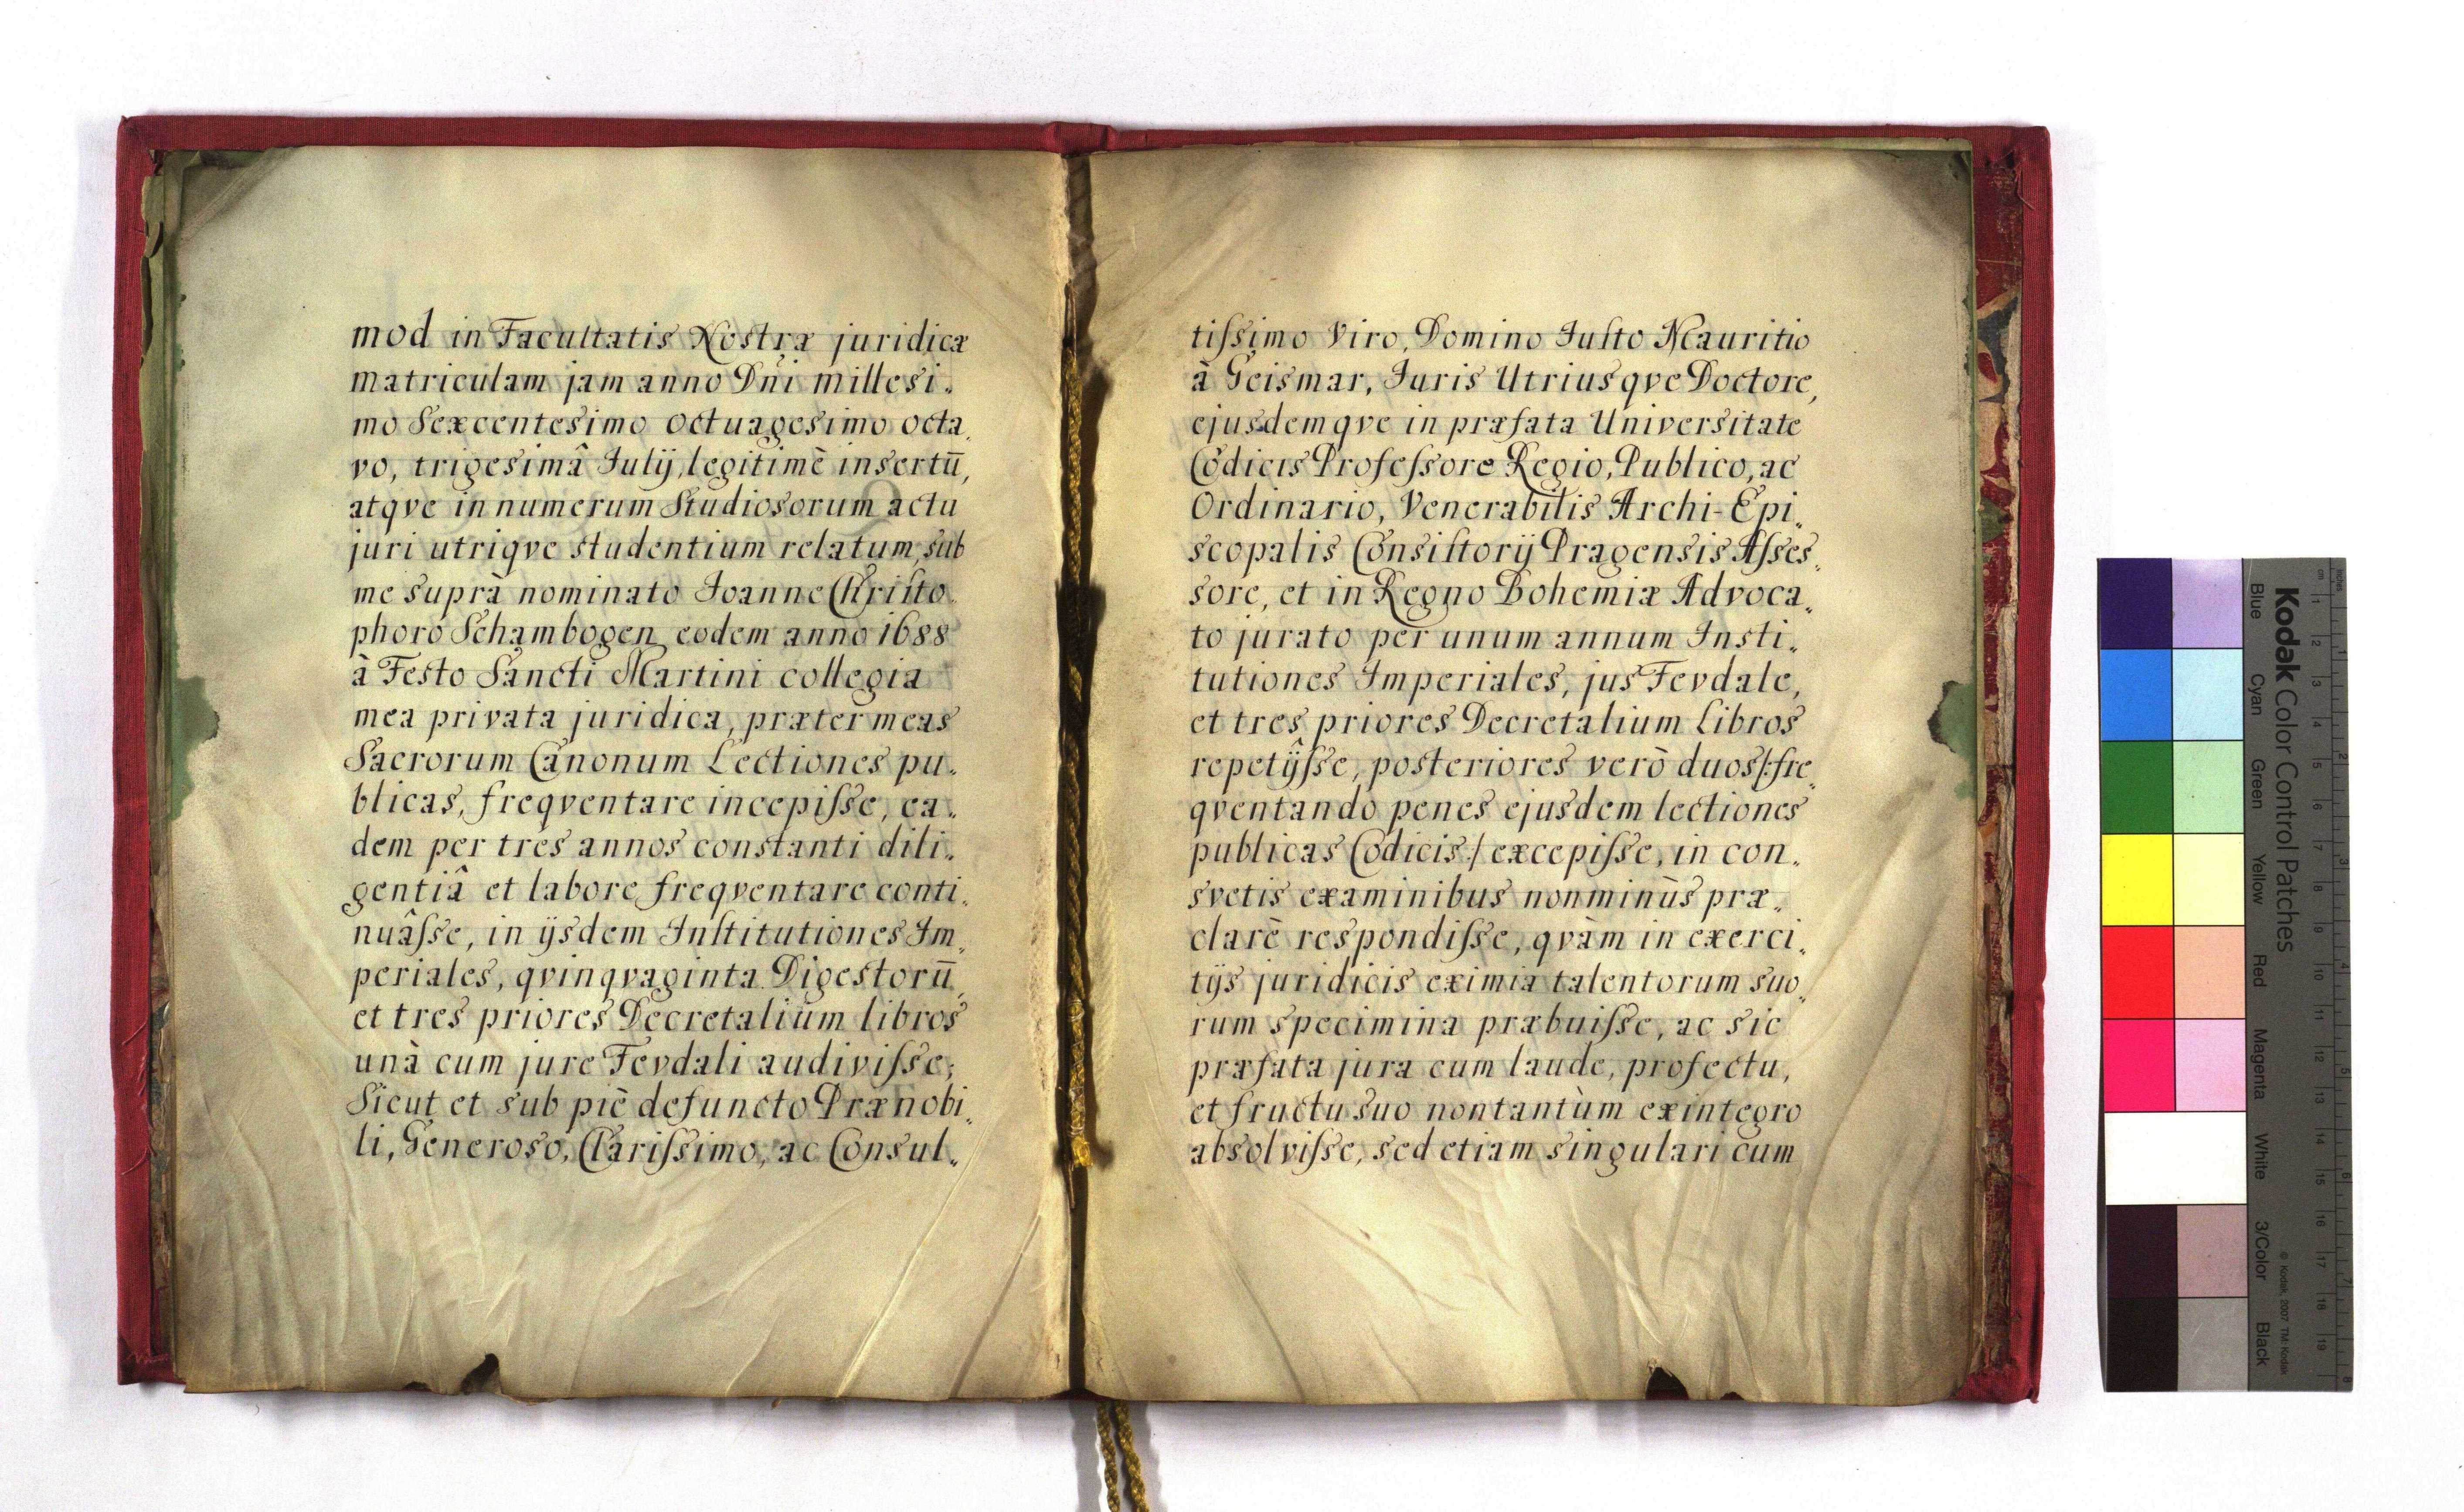 mod in Facultatis Nostræ juridicæ
matriculam jam anno Dñi millesi„
mo Sexcentesimo octuagesimo octa„
vo, trigesimâ Iulij, legitimè insertū,
atqve in numerum Studiosorum actu
juri utriqve studentium relatum, sub
me suprà nominato Ioanne Chriſto„
phoro Schambogen, eodem anno 1688
à Festo Sancti Martini collegia
mea privata juridica, præter meas
Sacrorum Canonum Lectiones pu„
blicas, freqventare incepiſse, ea„
dem per tres annos constanti dili„
gentiâ et labore freqventare conti„
nuâſse, in ijsdem Inſtitutiones Im„
periales, qvinqvaginta Digestorū,
et tres priores Decretalium libros
unà cum jure Fevdali audiviſse;
Sicut et sub piè defuncto Prænobi„
li, Generoso, Clariſsimo, ac Consul„
tiſsimo Viro, Domino Iuſto Mauritio
à Geismar, Iuris Utriusqve Doctore,
ejusdemqve in præfata Universitate
Codicis Profeſsore Regio, Publico, ac
Ordinario, Venerabilis Archi-Epi„
scopalis Consiſtorij Pragensis Aſses„
sore, et in Regno Bohemiæ Advoca„
to jurato per unum annum Insti„
tutiones Imperiales, jus Fevdale,
et tres priores Decretalium Libros
repetijſse, posteriores verò duos /:fre„
qventando penes ejusdem lectiones
publicas Codicis:/ excepiſse, in con„
svetis examinibus non minùs præ„
clarè respondiſse, qvàm in exerci„
tijs juridicis eximia talentorum suo„
rum specimina præbuiſse, ac sic
præfata jura cum laude, profectu,
et fructu suo non tantùm ex integro
absolviſse, sed etiam singulari cum
Kodak Color Control Patches
Blue Cyan Green Yellow Red Magenta White 3/Color Black
© Kodak, 2007 TM: Kodak